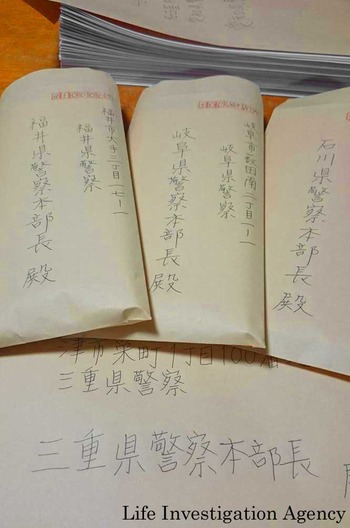 福井市大手三丁目一七ー一
福井県警察
福井県警察本部長 殿
岐阜市薮田南二丁目一ー一
岐阜県警察
岐阜県警察本部長 殿
石川県警察本部長 殿
津市栄町1丁目100番
三重県警察
三重県警察本部長
Life Investigation Agency